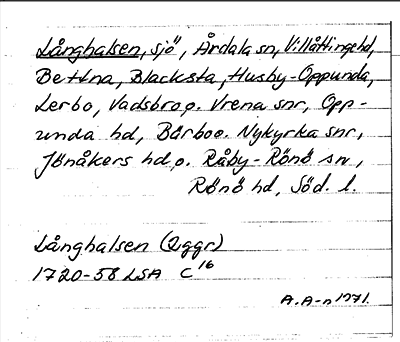 Långhalsen, sjö, Årdala sn, Villåttinge hd,
Bettna, Blacksta, Husby-Oppunda,
Lerbo, Vadsbro o. Vrena snr, Opp-
unda hd, Bärbo o. Nykyrka snr,
Jönåkers hd, o. Råby-Rönö sn,
Rönö hd, Söd. l.
Långhalsen (2ggr)
1720-58 LSA C16
A.A-n 1971.